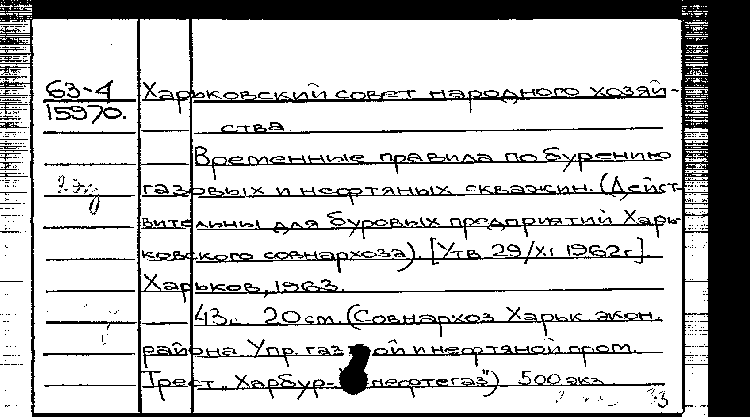 63-4 Харьковский совет народного хозяй-
15970.
ства
Временные правила по бурению
2 эк газовых и нефтяных скважин. (Дейст-
вительны для буровых предприятий Харь-
ковского совнархоза). [Утв 29/XI 1962г].
Харьков, 1963.
43с. 20см. (Совнархоз Харьк. экон.
района Упр. газовой и нефтяной пром.
Трест „Харбур- нефтегаз") 500 экз.
33